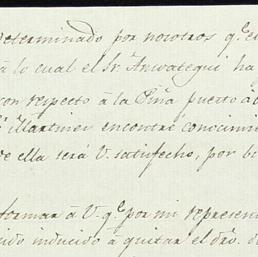 determinado por nosotros q.e el
à lo cual el Sr. Anzoategui ha
con respecto à la Piña puerto à
Martinez encontré conocimi
de ella será V. satisfecho, por
formar à V. q.e por mi represen
ido inducido à quitar el dro. d